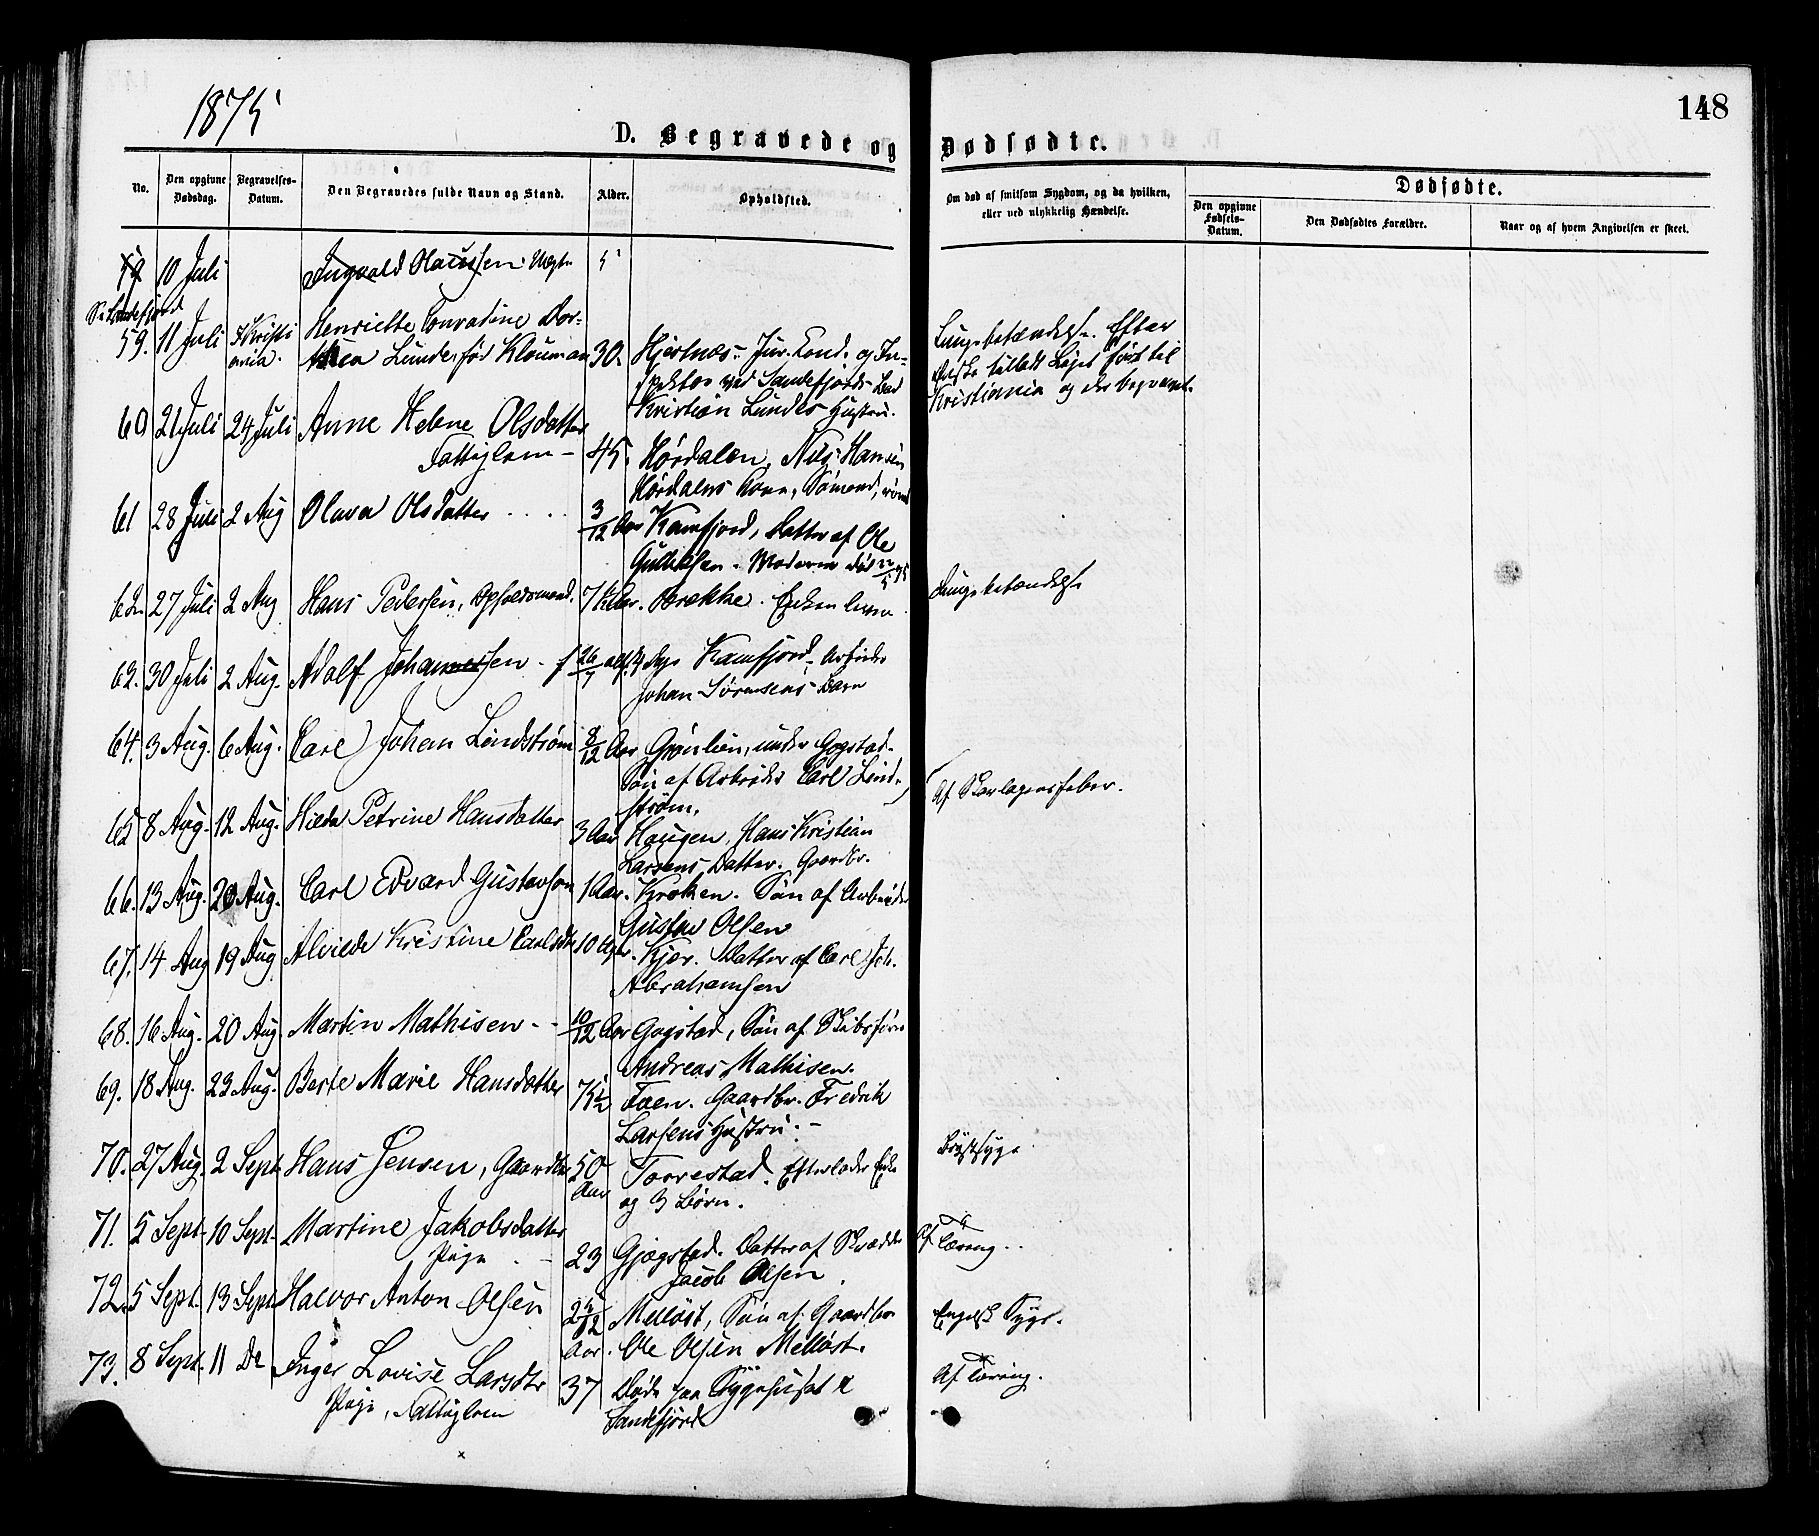 1875
148
D. Begravede og Dødfødte.
No.
Den opgivne Dødsdag.
Begravelses-Datum.
Den Begravedes fulde Navn og Stand.
Alder.
Opholdsted.
Om død af smitsom Sygdom, og da hvilken,
eller ved ulykkelig Hændelse.
Dødfødte.
Den opgivne Fødsels-Datum.
Den Dødfødtes Forældre.
Naar og af hvem Angivelsen er skeet.
59 10 Juli
Sandefjord
59. 11 Juli Kristiania. Henriette Conradine Dor-
thea Lunde, fød Klouman 30. Hjertnæs. Jur. Cand. og In-
spektør ved Sandefjords Bad
Kristian Lundes Hustru.
Lungebetændelse. Efter
Kristiania og der begravet.
60 21 Juli 24 Juli Anne Helene Olsdatter
Fattiglem - 45. Hørdalen, Nils Hansen
Hørdalens Kone, Sømand,
61 28 Juli 2 Aug Olava Olsdatter 3/12 Aar Kamfjord, Datter af Ole
Gulliksen. Moderen død 22/5 75
62. 27 Juli 2 Aug Hans Pedersen, Brække. Enken lever.
Lungebetændelse
63. 30 Juli 2 Aug. Adolf Johannessen. f 26/7 Kamfjord, Arbeider
Johan Sørensens Barn
64. 3 Aug. 6 Aug. Carl Johan Lindstrøm 8/12 Aar Grønlien, under Gogstad.
Søn af Arbeider Carl Lind-
strøm.
Af Skarlagensfeber.
65 8 Aug. 12 Aug. Hilda Petrine Hansdatter 3 Aar Haugen, Hans Kristian
Larsens Datter. Gaardbr.
66. 13 Aug. 20 Aug. Carl Edvard Gustavsen 1 Aar. Kroken. Søn af Arbeider
Gustav Olsen
67. 14 Aug 19 Aug Alvilde Kristine Carlsdtr 10 Kjær. Datter af Carl Joh.
Abrahamsen
68. 16 Aug. 20 Aug Martin Mathisen - - 10/12 Aar Gogstad, Søn af Skibsfører
Andreas Mathisen.
69. 18 Aug. 23 Aug. Berte Marie Hansdatter Foen. Gaardbr. Fredrik
Larsens Hustru. -
70. 27 Aug. 2 Sept Hans Jensen, Gaardbr 50 Aar Torrestad. Efterlader Enke
og 3 Børn.
Brystsyge
71. 5 Sept. 10 Sept. Martine Jakobsdatter
Pige - 23 Gjøgstad. Datter af Skrædder
Jacob Olsen.
Af Tæring..
72. 5 Sept. 13 Sept Halvor Anton Olsen 2 5/12 Aar. Melløst, Søn af Gaardbr
Ole Olsen Melløst.
Engelsk Syge.
73. 8 Sept. 11 Do Inger Lovise Larsdtr
Pige, Fattiglem 37 Døde paa Sygehuset i
Sandefjord
Af Tæring.